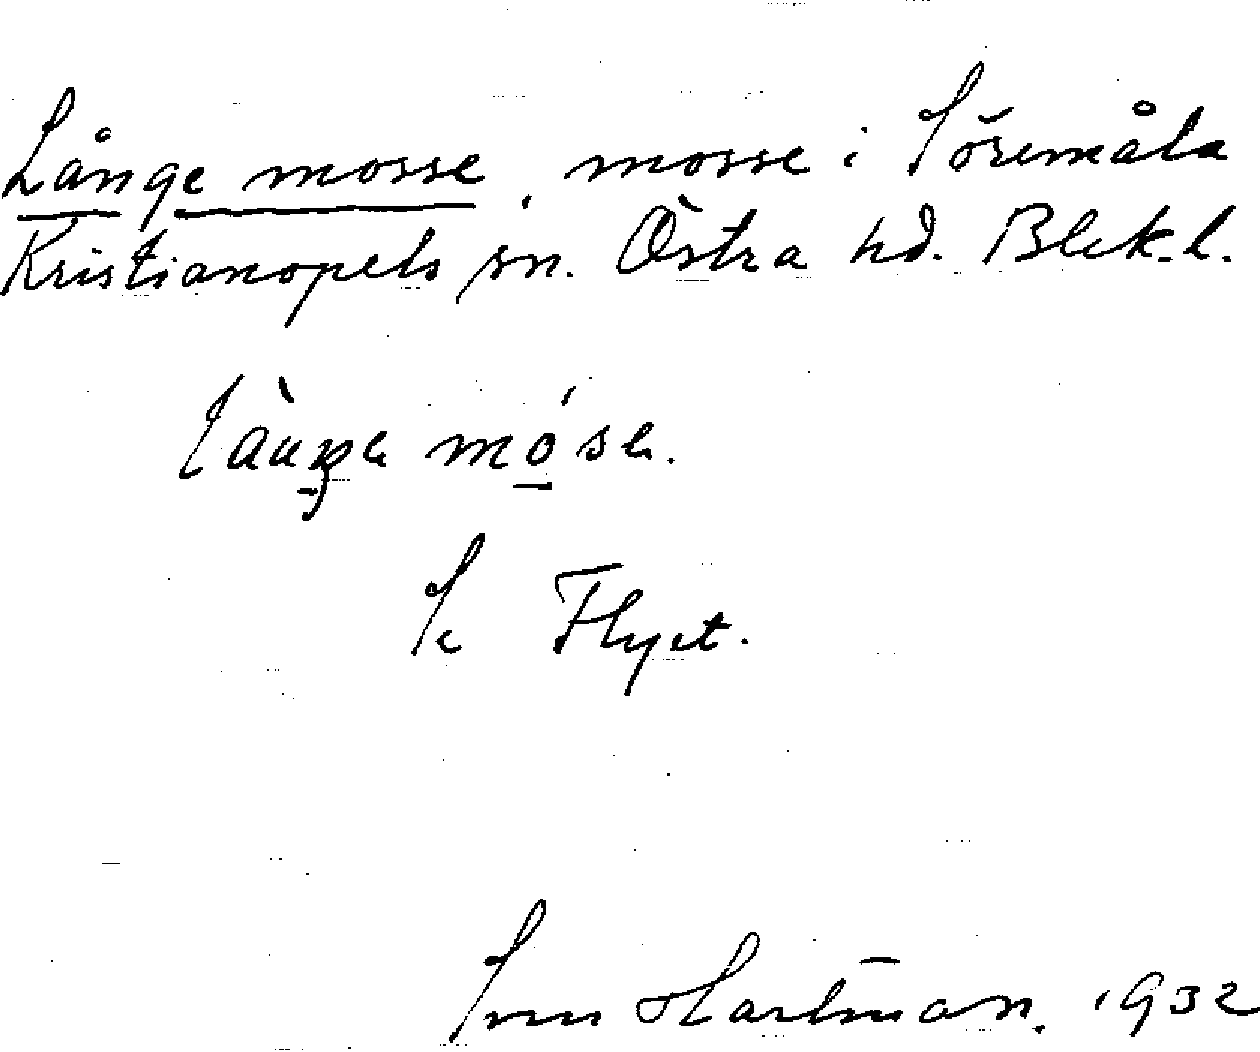 Långe mosse, mosse i Söremåla
Kristianopels sn. Östra hd. Blek.l.
Se Flyet.
Sven Hartman. 1932